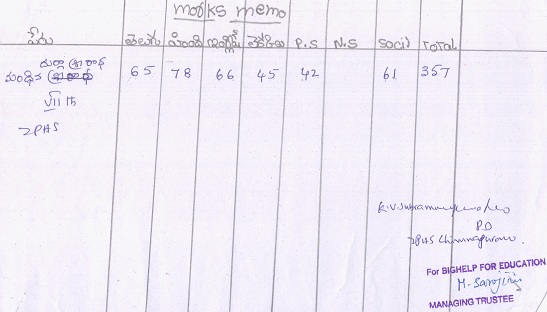 marks memo
పేరు తెలుగు హిందీ ఇంగ్లీష్ P.S N.S Social Total
65 78 66 45 42 61 357
VII th
ZPHS
P.D
ZPHS Chinnapuram.
For BIGHELP FOR EDUCATION
M. Sarojini
MANAGING TRUSTEE